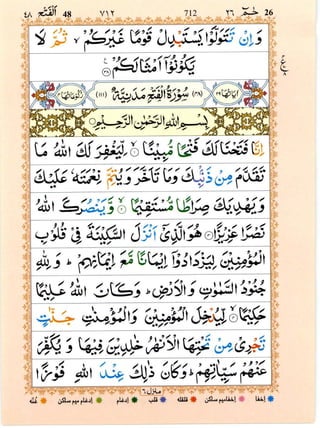 حٰمٓ ٢٦ 26 712 ٧١٢ 48 اَلْفَتْح ٤٨
وَاِنْ تَتَوَلَّوْا يَسْتَبْدِلْ قَوْمًا غَيْرَكُمْ ۙ ثُمَّ لَا
يَكُوْنُوْٓا اَمْثَالَكُمْ ﴿٣٨﴾
اٰيَاتُهَا ٢٩ (٤٨) سُوْرَةُ الْفَتْحِ مَدَنِيَّةٌ (١١١) رُكُوْعَاتُهَا ٤
بِسْمِ اللّٰهِ الرَّحْمٰنِ الرَّحِيْمِ
اِنَّا فَتَحْنَا لَكَ فَتْحًا مُّبِيْنًا ۙ﴿١﴾ لِّيَغْفِرَ لَكَ اللّٰهُ مَا
تَقَدَّمَ مِنْ ذَنْۢبِكَ وَمَا تَاَخَّرَ وَيُتِمَّ نِعْمَتَهٗ عَلَيْكَ
وَيَهْدِيَكَ صِرَاطًا مُّسْتَقِيْمًا ۙ﴿٢﴾ وَّيَنْصُرَكَ اللّٰهُ
نَصْرًا عَزِيْزًا ﴿٣﴾ هُوَ الَّذِيْٓ اَنْزَلَ السَّكِيْنَةَ فِيْ قُلُوْبِ
الْمُؤْمِنِيْنَ لِيَزْدَادُوْٓا اِيْمَانًا مَّعَ اِيْمَانِهِمْ ؕ وَلِلّٰهِ
جُنُوْدُ السَّمٰوٰتِ وَالْاَرْضِ ؕ وَكَانَ اللّٰهُ عَلِيْمًا
حَكِيْمًا ۙ﴿٤﴾ لِّيُدْخِلَ الْمُؤْمِنِيْنَ وَالْمُؤْمِنٰتِ جَنّٰتٍ
تَجْرِيْ مِنْ تَحْتِهَا الْاَنْهٰرُ خٰلِدِيْنَ فِيْهَا وَيُكَفِّرَ
عَنْهُمْ سَيِّاٰتِهِمْ ؕ وَكَانَ ذٰلِكَ عِنْدَ اللّٰهِ فَوْزًا
منزل ٦
اخفا اخفامیم ساکن قلقلہ قلب ادغام ادغام میم ساکن غنّہ